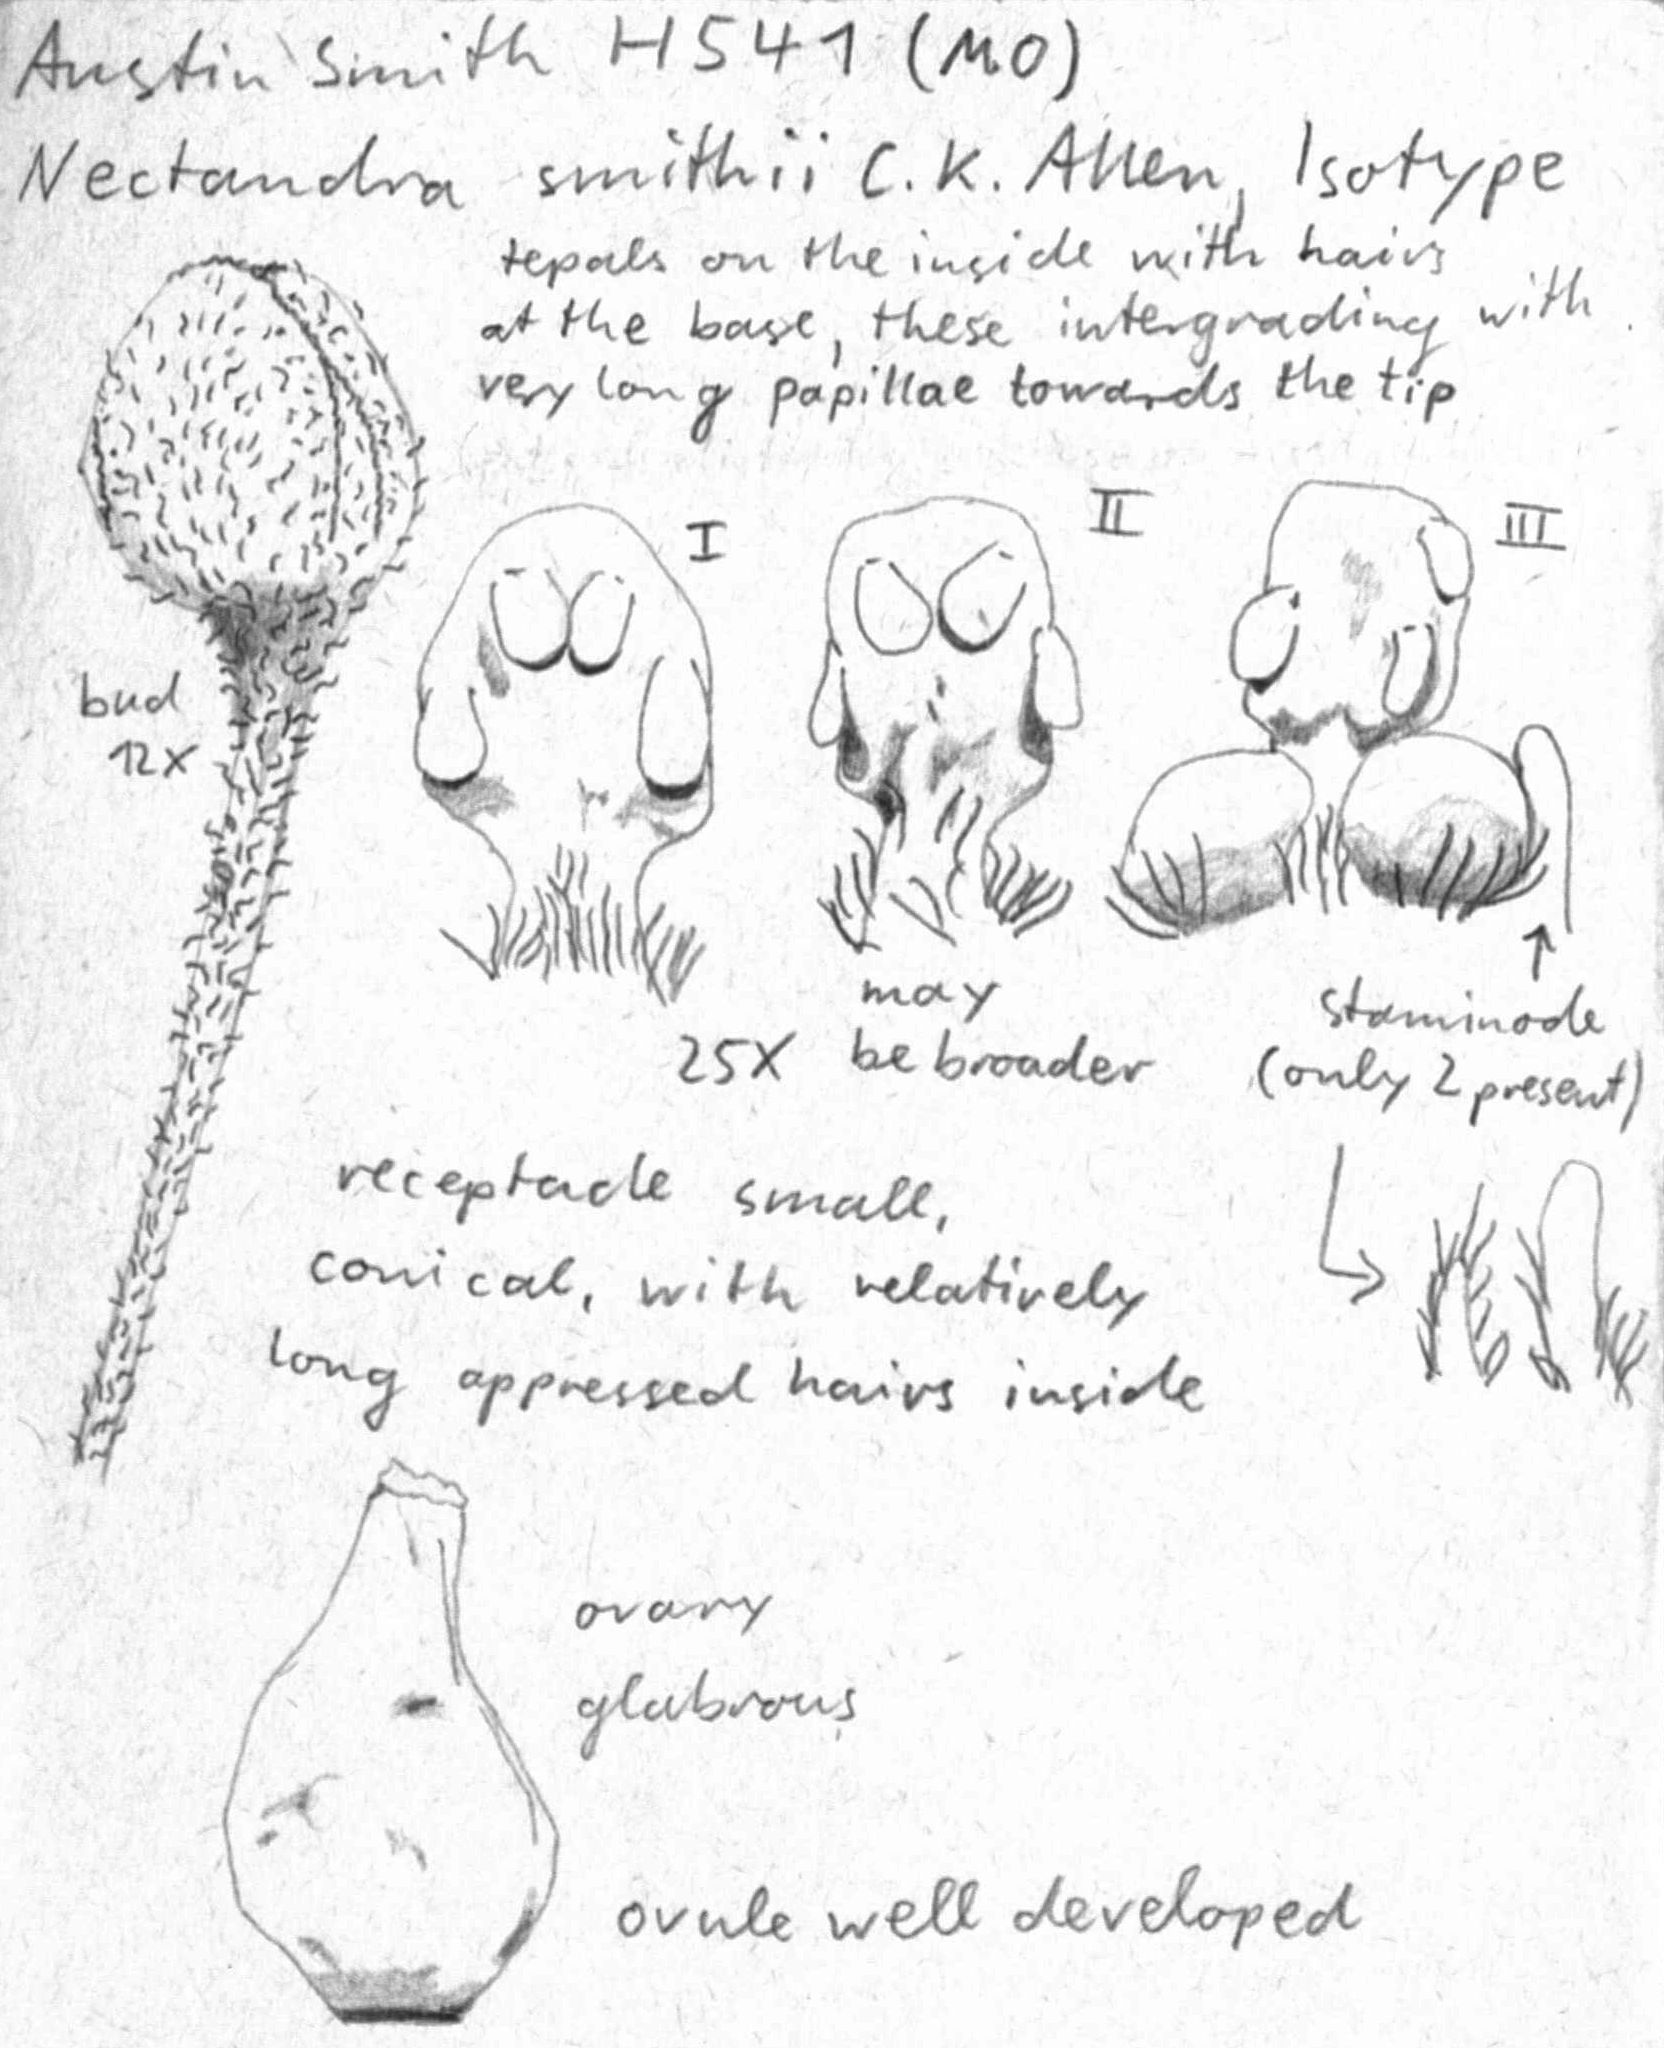 Austin Smith H541 (MO)
Nectandra smithii C.K. Allen, Isotype
tepals on the inside with hairs
at the base, these intergrading with
very long papillae towards the tip
I
II
III
bud
12x
may
25X be broader
staminode
(only 2 present)
receptacle small,
conical, with relatively
long appressed hairs inside
ovary
glabrous
ovule well developed